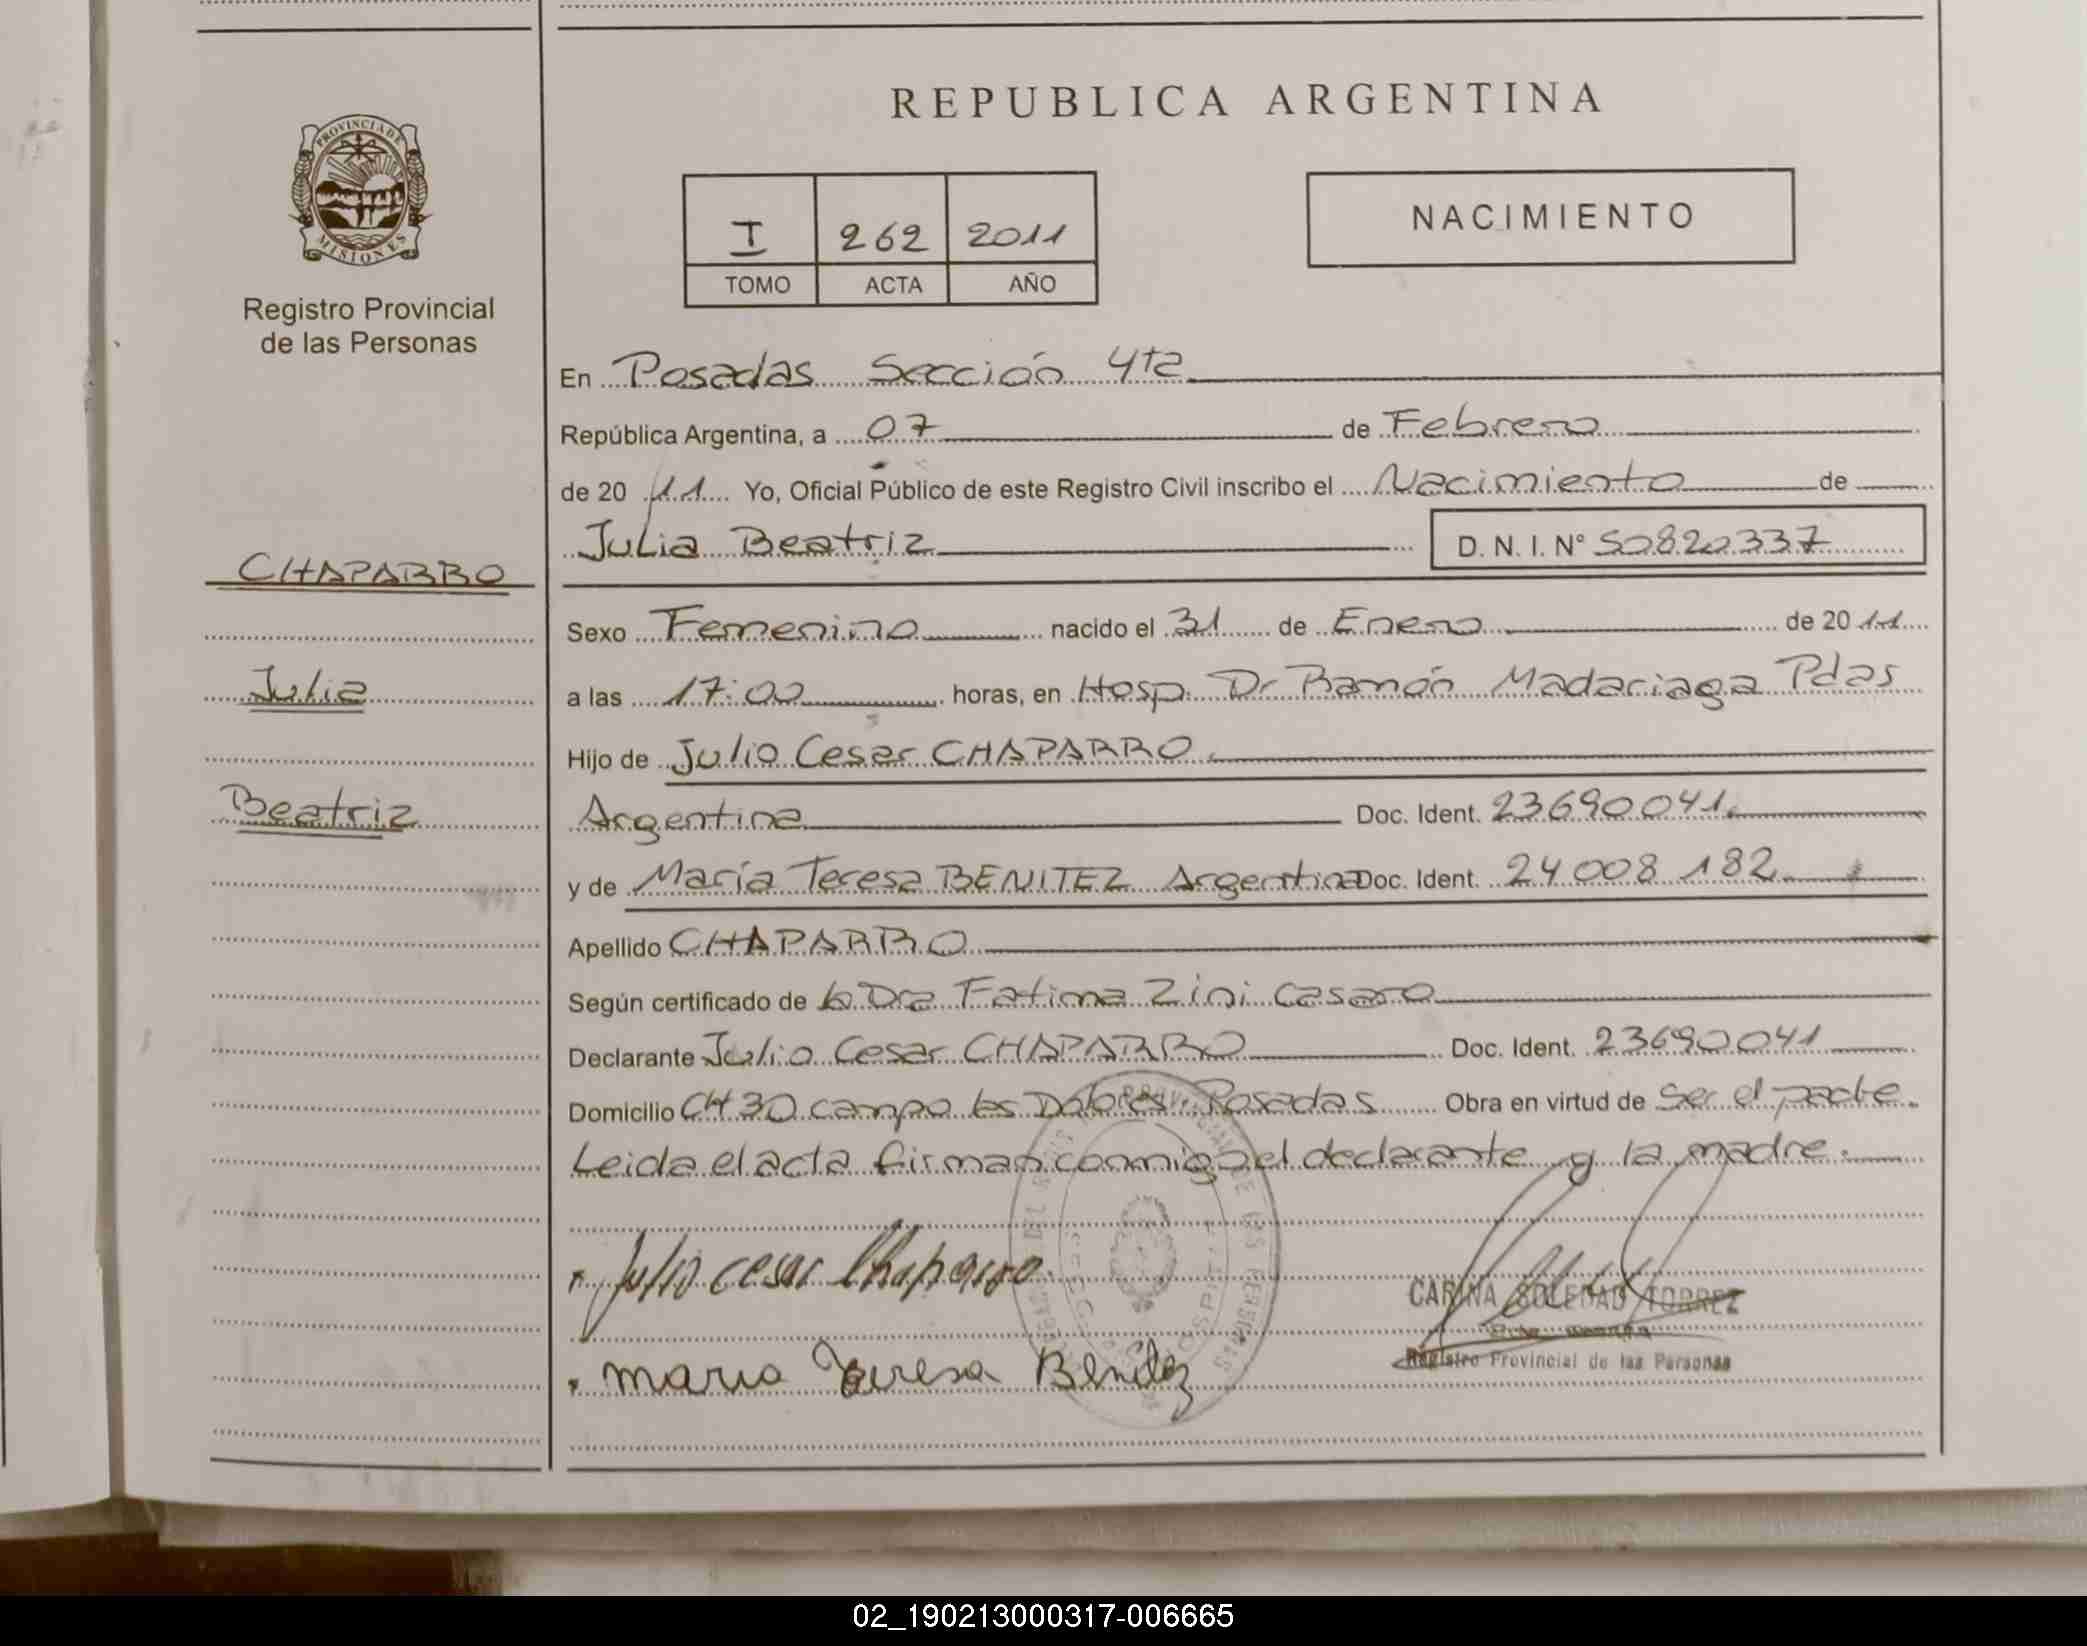 REPUBLICA ARGENTINA
PROVINCIA DE
MISIONES
Registro Provincial
de las Personas
I 262 2011
TOMO ACTA AÑO
NACIMIENTO
En Posadas Sección 4ta
República Argentina, a 07 de Febrero
de 20 11 Yo, Oficial Público de este Registro Civil inscribo el Nacimiento de
Julia Beatriz D. N. I. N° 50820337
CHAPARRO
Sexo Femenino nacido el 31 de Enero de 20 11
Julia
a las 17:00 horas, en Hosp. Dr Ramón Madariaga Pdas
Hijo de Julio Cesar CHAPARRO
Beatriz
Argentina Doc. Ident. 23690041
y de María Teresa BENITEZ Argentina Doc. Ident. 24 008 182
Apellido CHAPARRO
Según certificado de la Dra Fatima Zini Casaro
Declarante Julio Cesar CHAPARRO Doc. Ident. 23690041
Domicilio CH 30 campo los Dolores. Posadas Obra en virtud de ser el padre.
Leida el acta firman conmigo el declarante y la madre.
Julio cesar Chaparro
CARINA SOLEDAD TORREZ
Registro Provincial de las Personas
maria Teresa Benitez
02_190213000317-006665